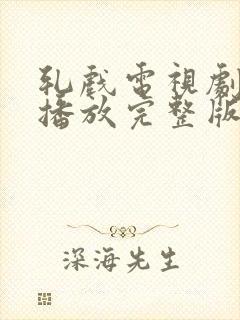 乳戲電視劇
播放完整版
深海先生